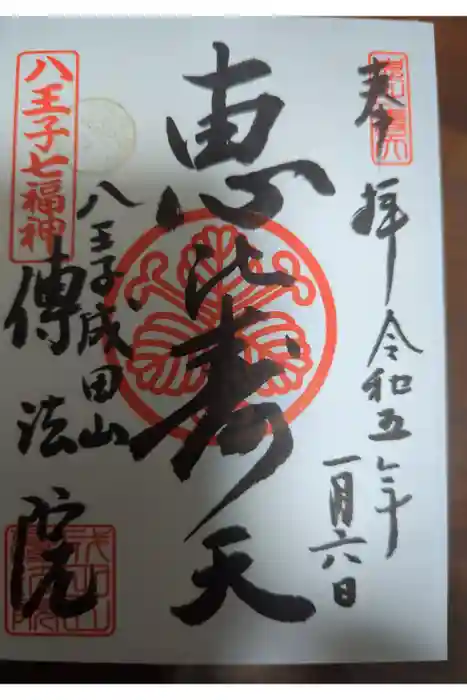 奉拝
令和五年
一月六日
恵比寿天
八王子成田山
傳法院
八王子七福神